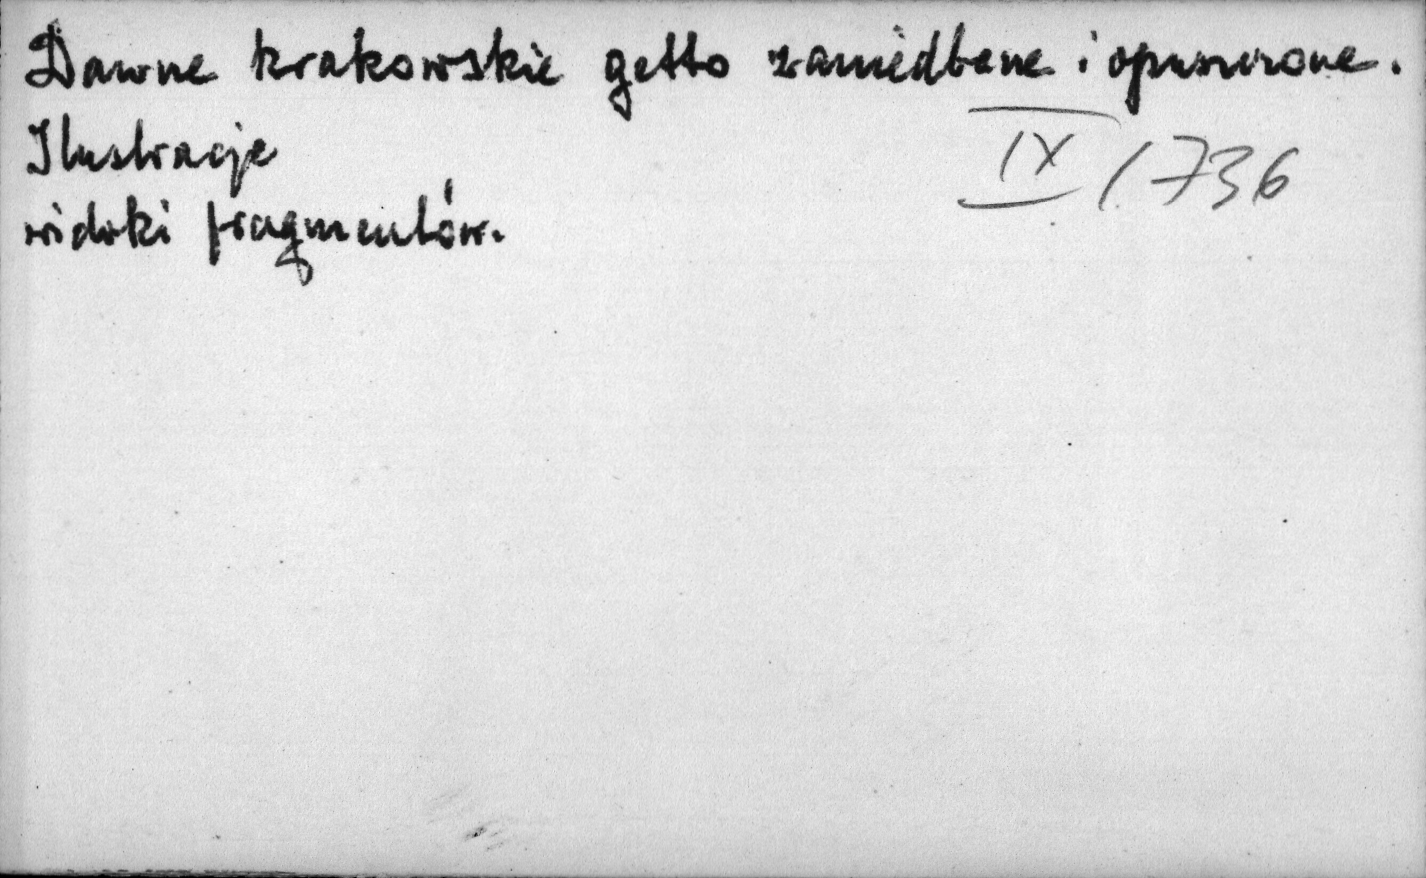 Dawne krakowskie getto zaniedbane i opuszczone.
IX/736
Ilustracje
widoki fragmentów.